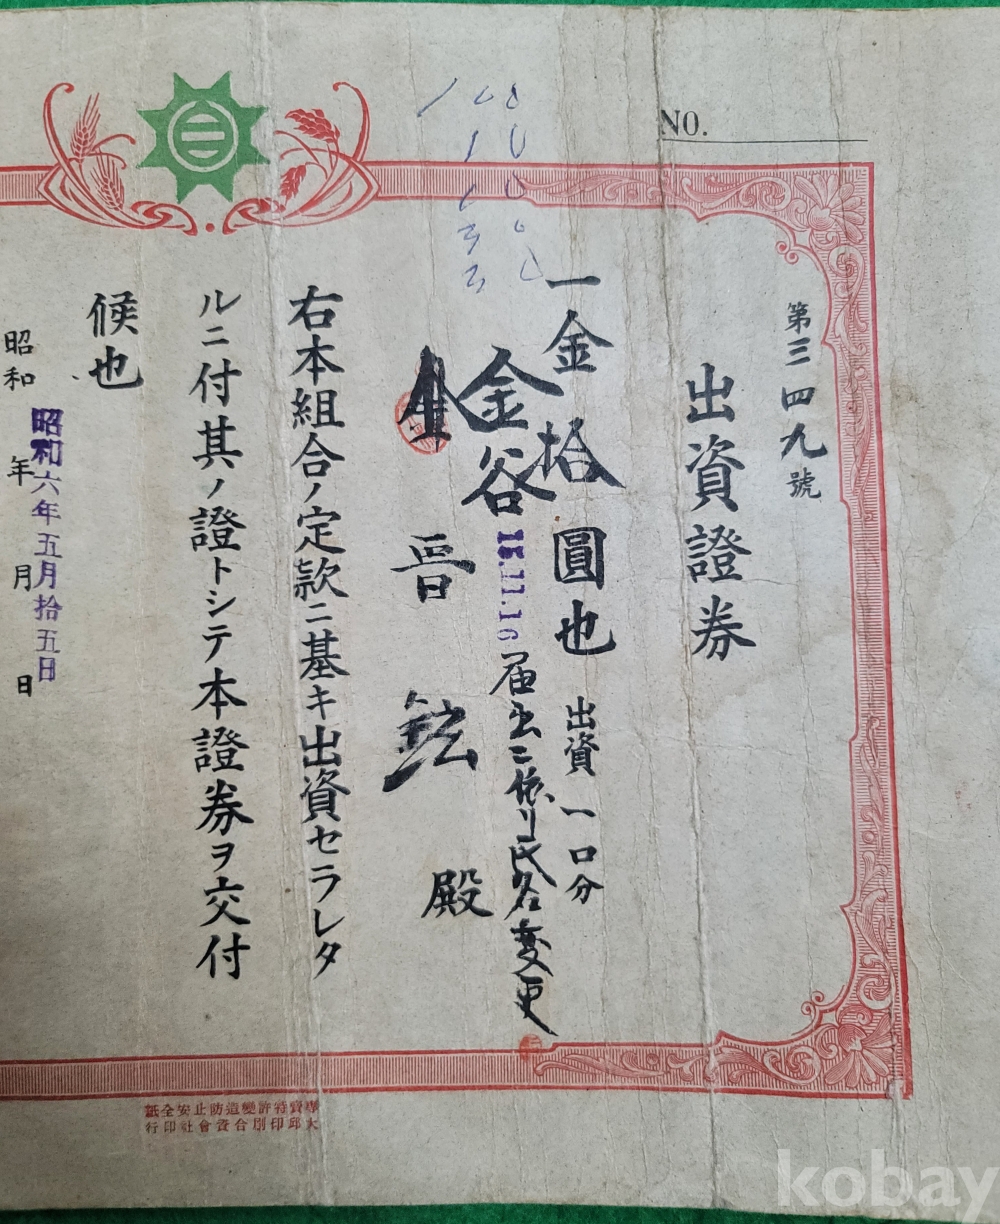 NO.
第三四九號
出資證券
一金拾圓也 出資一口分
15.11.16届出ニ依リ氏名変更
金谷
晋鉉 殿
右本組合ノ定款ニ基キ出資セラレタ
ルニ付其ノ證トシテ本證券ヲ交付
候也
昭和 年 月 日
昭和六年五月拾五日
專賣特許變造防止安全紙
大邱印刷合資會社印行
kobay